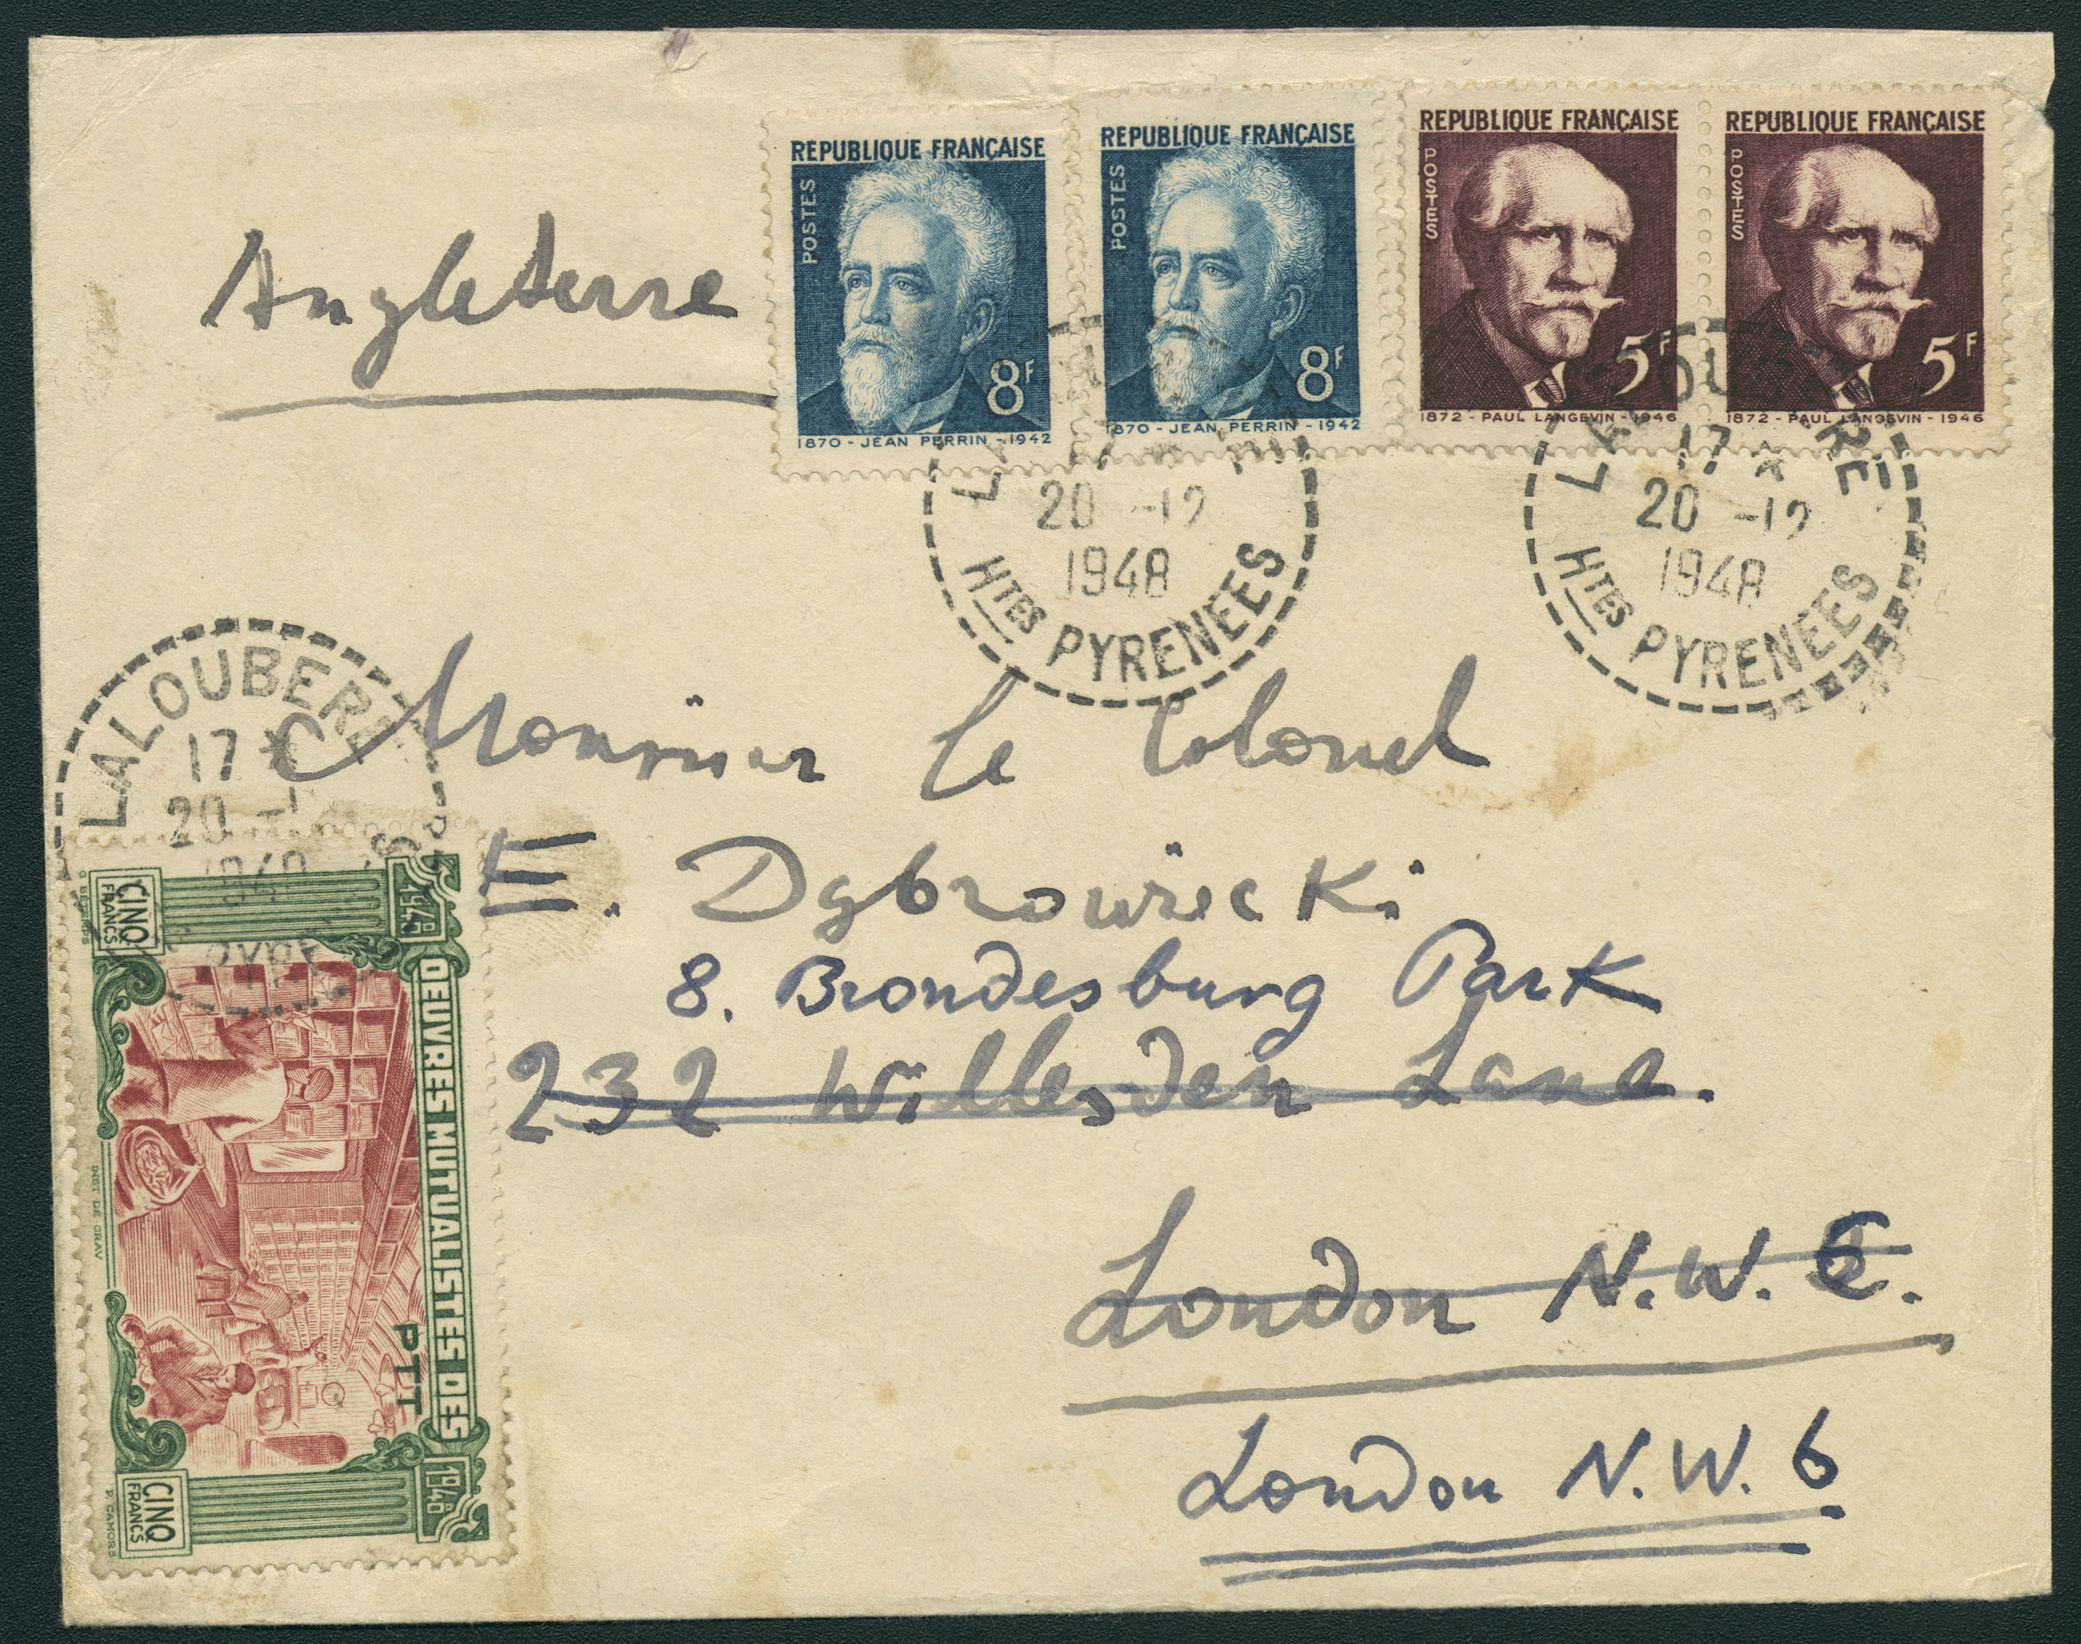 Angleterre
REPUBLIQUE FRANÇAISE
POSTES
8F
1870 - JEAN PERRIN - 1942
REPUBLIQUE FRANÇAISE
POSTES
8F
1870 - JEAN PERRIN - 1942
REPUBLIQUE FRANÇAISE
POSTES
5F
1872 - PAUL LANGEVIN - 1946
REPUBLIQUE FRANÇAISE
POSTES
5F
1872 - PAUL LANGEVIN - 1946
20 -12
1948
Htes PYRENEES
17
20 -12
1948
Htes PYRENEES
LALOUBERE
17 *
20
Monsieur le Colonel
E. Dąbrowiecki
8. Brondesburg Park
232 Willesden Lane.
London N.W. 6.
London N.W. 6
OEUVRES MUTUALISTES DES
PTT
CINQ
FRANCS
CINQ
FRANCS
1948
INST DE GRAV
P. CAMORS